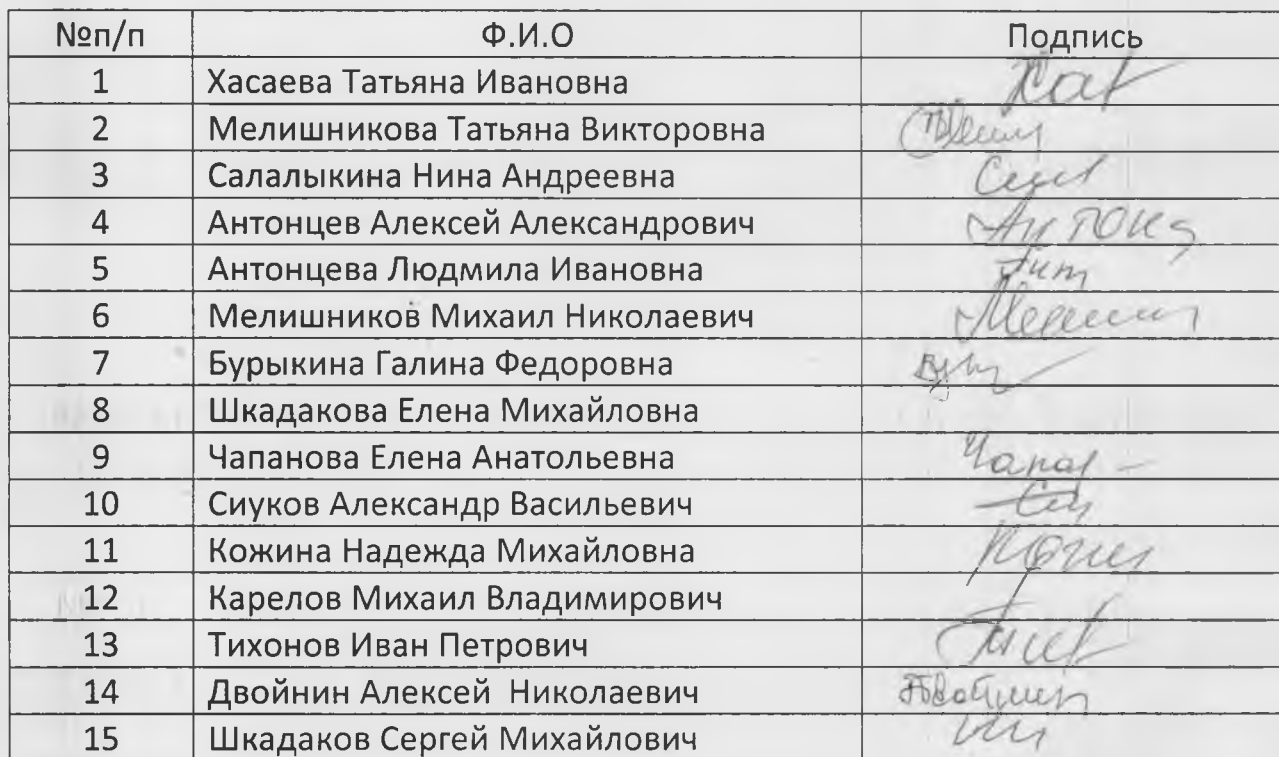 №п/п Ф.И.О Подпись
1 Хасаева Татьяна Ивановна
2 Мелишникова Татьяна Викторовна
3 Салалыкина Нина Андреевна
4 Антонцев Алексей Александрович Антонц
5 Антонцева Людмила Ивановна
6 Мелишников Михаил Николаевич
7 Бурыкина Галина Федоровна
8 Шкадакова Елена Михайловна
9 Чапанова Елена Анатольевна
10 Сиуков Александр Васильевич
11 Кожина Надежда Михайловна
12 Карелов Михаил Владимирович
13 Тихонов Иван Петрович
14 Двойнин Алексей Николаевич
15 Шкадаков Сергей Михайлович